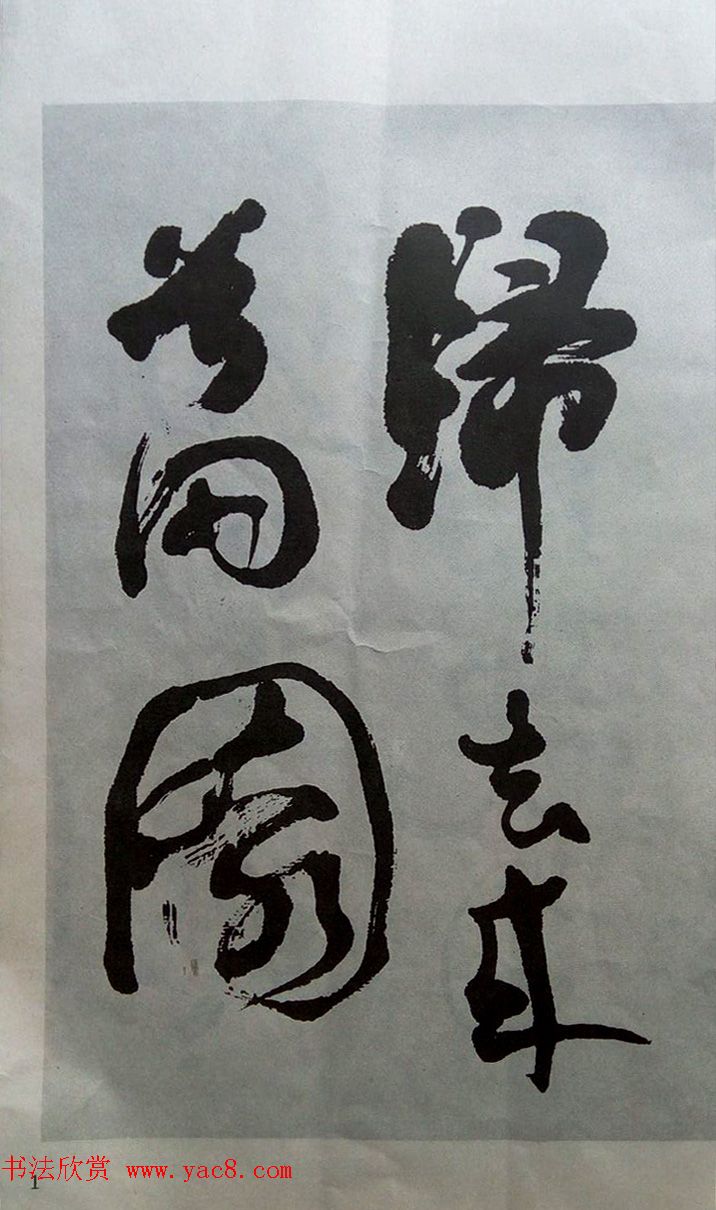 歸去來
兮田園
书法欣赏 www.yac8.com
1